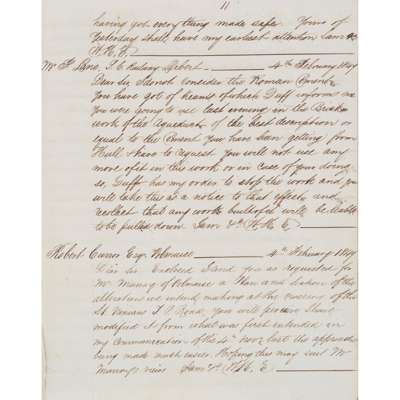 11
having got everything made safe. Yours of
Yesterday shall have my earliest attention I am &c
(
4th February 1847
Dear Sir, I do not consider the Roman Cement
You have got of Keans of which Duff informs me
You were going to use last evening in the
work of the Aqueduct of the best description or
equal to the Cement you have been getting from
Hull & have to request you will not use any
more of it in this work or in case of your doing
so, Duff has my order to stop the work and you
will take this as a notice to that effect and
recollect that any work built of it will be liable
to be pulled down I am
Robert Esqr 4th February 1847
Dear Sir Enclosed I send you as requested for
Mr Murray of a Plan and Section of the
alterations we intend making at the crossing of the
St Road, you will perceive I have
modified it from what was first intended in
my Communication of the 4th Novr last the approach
being made much easier. Hoping this may suit Mr
Murray's views I am